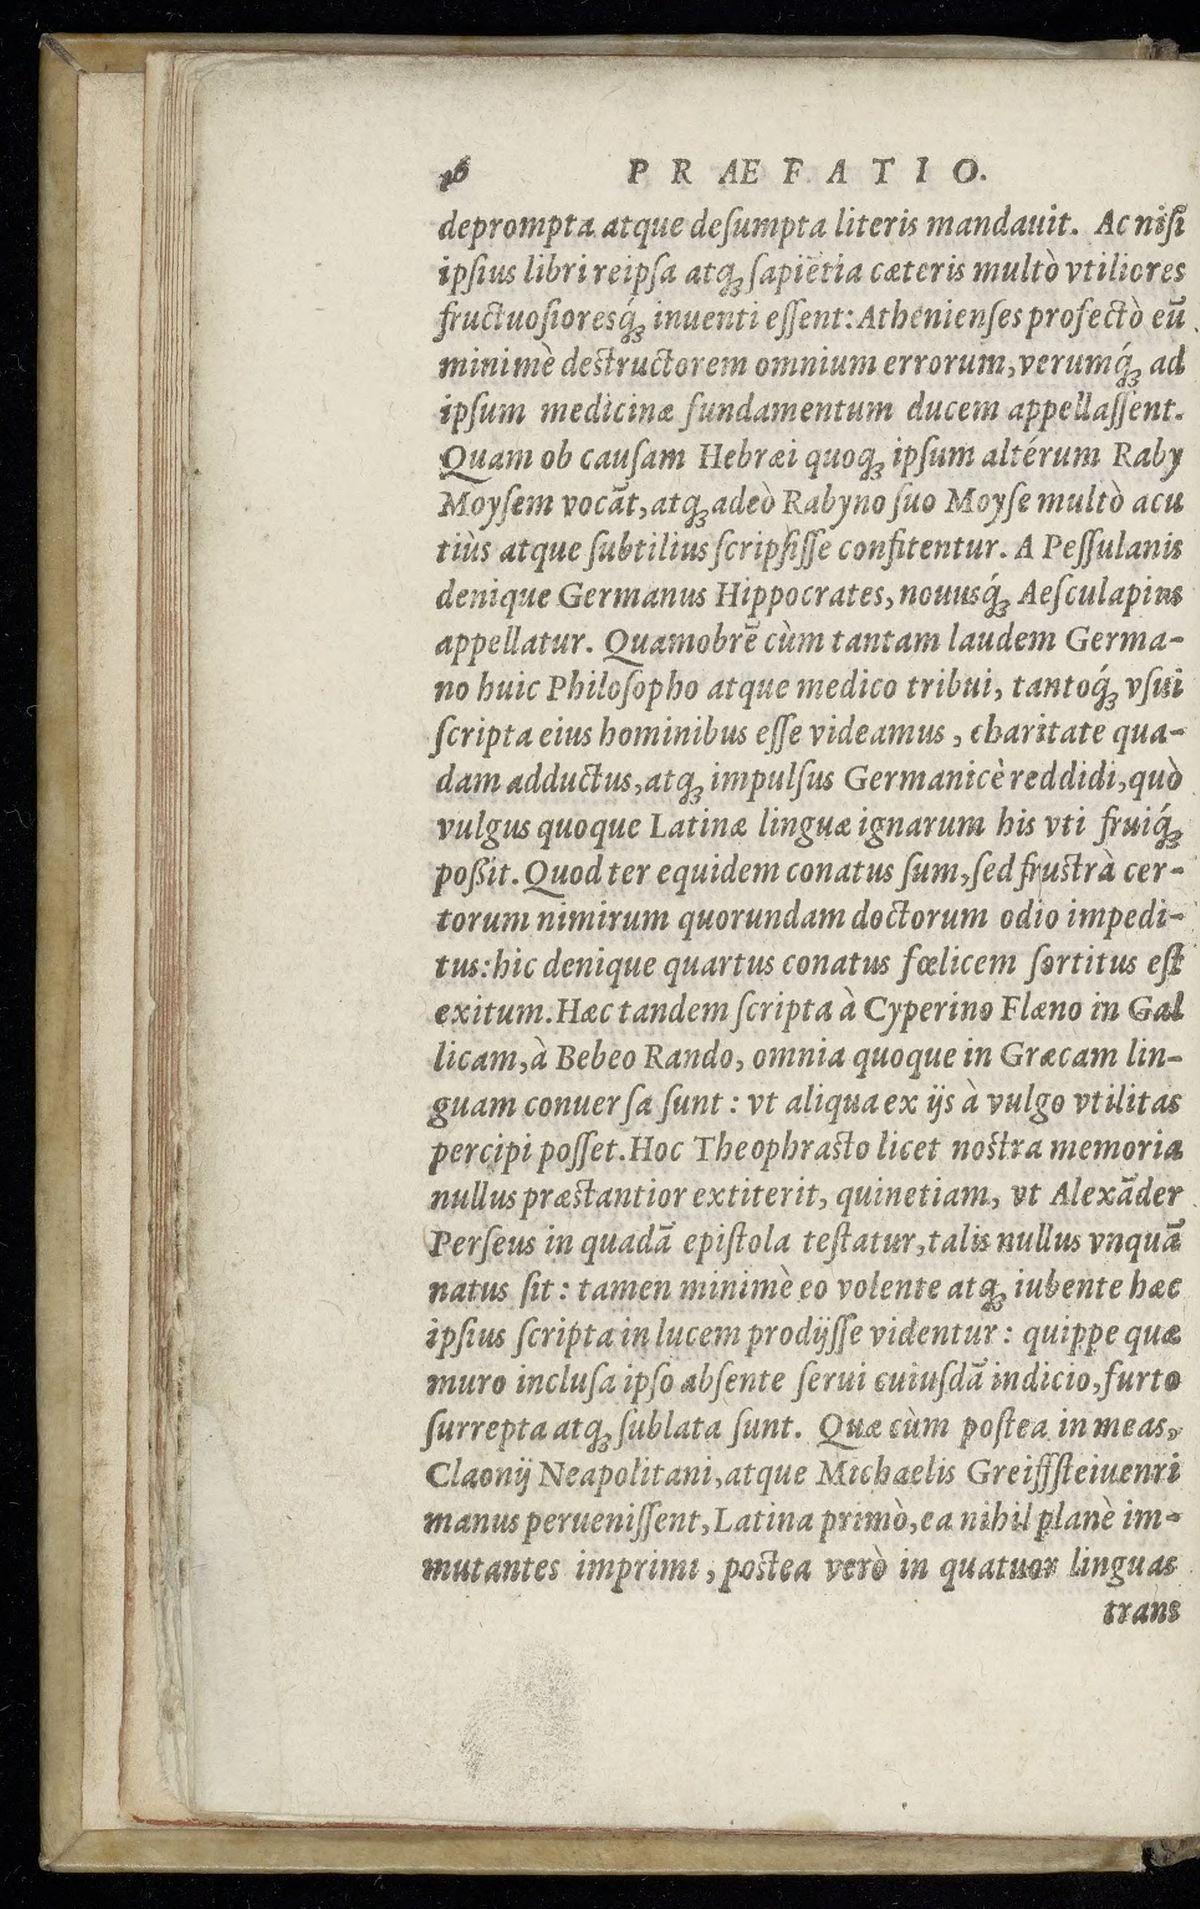 16 PRÆFATIO.
deprompta atque deſumpta literis mandauit. Ac niſi
ipſius libri reipſa atq; ſapiētia cæteris multò vtiliores
fructuoſioresq́; inuenti eſſent: Athenienſes profectò eū
minimè destructorem omnium errorum, verumq́; ad
ipſum medicinæ fundamentum ducem appellaſſent.
Quam ob cauſam Hebræi quoq; ipſum altérum Raby
Moyſem vocāt, atq; adeò Rabyno ſuo Moyſe multò acu
tiùs atque ſubtilius ſcripſiſſe confitentur. A Peſſulanis
denique Germanus Hippocrates, nouusq́; Aeſculapius
appellatur. Quamobrē cùm tantam laudem Germa-
no huic Philoſopho atque medico tribui, tantoq́; vſui
ſcripta eius hominibus eſſe videamus, charitate qua-
dam adductus, atq; impulſus Germanicè reddidi, quò
vulgus quoque Latinæ linguæ ignarum his vti fruiq́;
poßit. Quod ter equidem conatus ſum, ſed frustrà cer-
torum nimirum quorundam doctorum odio impedi-
tus: hic denique quartus conatus fœlicem ſortitus eſt
exitum. Hæc tandem ſcripta à Cyperino Flæno in Gal
licam, à Bebeo Rando, omnia quoque in Græcam lin-
guam conuerſa ſunt: vt aliqua ex ijs à vulgo vtilitas
percipi poſſet. Hoc Theophrasto licet nostra memoria
nullus præstantior extiterit, quinetiam, vt Alexāder
Perſeus in quadā epiſtola teſtatur, talis nullus vnquā
natus ſit: tamen minimè eo volente atq; iubente hæc
ipſius ſcripta in lucem prodijſſe videntur: quippe quæ
muro incluſa ipſo abſente ſerui cuiuſdā indicio, furto
ſurrepta atq; ſublata ſunt. Quæ cùm poſtea in meas,
Claonij Neapolitani, atque Michaelis Greiffſteiuenri
manus perueniſſent, Latina primò, ea nihil planè im-
mutantes imprimi, postea verò in quatuor linguas
trans